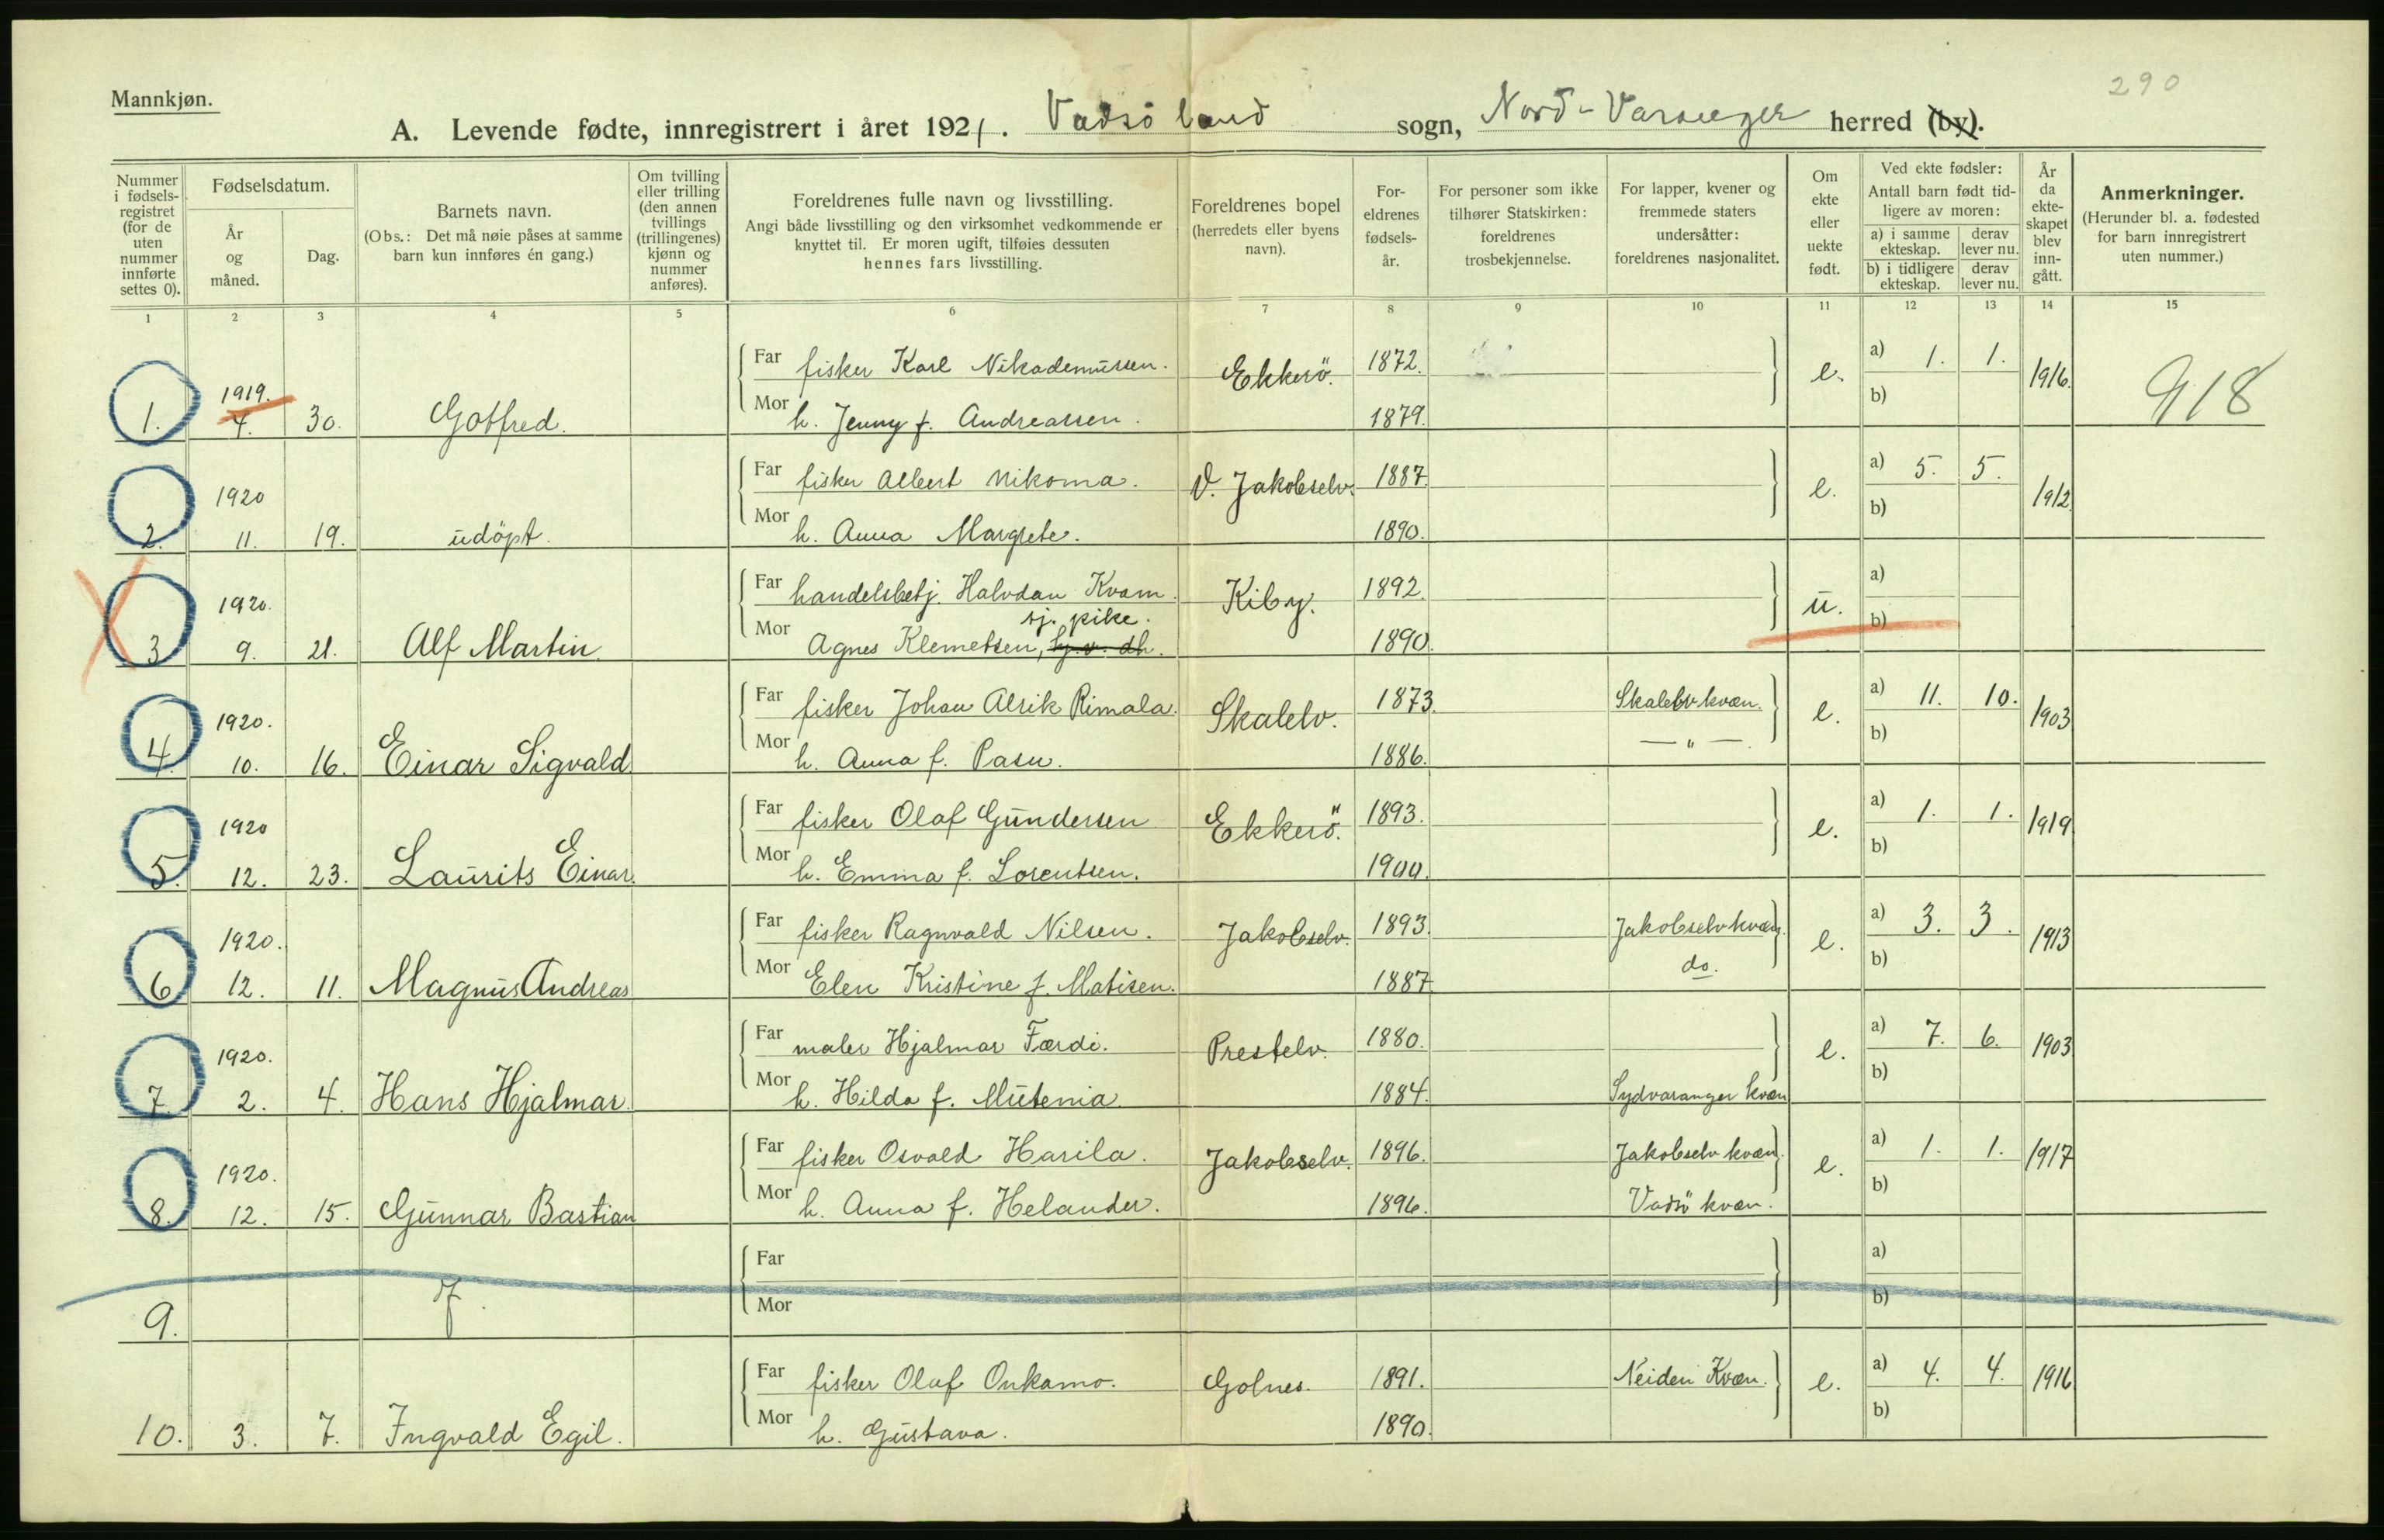 290
Mannkjøn.
A. Levende fødte, innregistrert i året 1921. Vadsö land sogn, Nord-Varanger herred (by).
Nummer i fødsels-registret (for de uten nummer innførte settes 0).
Fødselsdatum.
År og måned.
Dag.
Barnets navn.
(Obs.: Det må nøie påses at samme barn kun innføres én gang.)
Om tvilling eller trilling (den annen tvillings (trillingenes) kjønn og nummer anføres).
Foreldrenes fulle navn og livsstilling.
Angi både livsstilling og den virksomhet vedkommende er knyttet til. Er moren ugift, tilføies dessuten hennes fars livsstilling.
Foreldrenes bopel (herredets eller byens navn).
For-eldrenes fødsels-år.
For personer som ikke tilhører Statskirken: foreldrenes trosbekjennelse.
For lapper, kvener og fremmede staters undersåtter: foreldrenes nasjonalitet.
Om ekte eller uekte født.
Ved ekte fødsler:
Antall barn født tid-ligere av moren:
a) i samme ekteskap. derav lever nu.
b) i tidligere ekteskap. derav lever nu.
År da ekte-skapet blev inn-gått.
Anmerkninger.
(Herunder bl. a. fødested for barn innregistrert uten nummer.)
1 2 3 4 5 6 7 8 9 10 11 12 13 14 15
1. 1919. 4. 30. Gotfred.
Far fisker Karl Nikademussen. Ekkerö. 1872. e. a) 1. 1. 1916. 918
Mor h. Jenny f. Andreassen. 1879. b)
2. 1920 11. 19. udöpt.
Far fisker Albert Nikoma. V. Jakobselv. 1887. e. a) 5. 5. 1912.
Mor h. Anna Margrete. 1890. b)
3 1920. 9. 21. Alf Martin.
Far handelsbetj. Halvdan Kvam. Kiby. 1892. u. a)
sj. pike.
Mor Agnes Klemetsen, 1890. b)
4. 1920. 10. 16. Einar Sigvald.
Far fisker Johan Alrik Rimala. Skalelv. 1873. Skalelv kvæn. e. a) 11. 10. 1903
Mor h. Anna f. Pasu. 1886. — " — b)
5. 1920 12. 23. Laurits Einar.
Far fisker Olaf Gundersen Ekkerö. 1893. e. a) 1. 1. 1919
Mor h. Emma f. Lorentsen. 1900. b)
6 1920. 12. 11. Magnus Andreas
Far fisker Ragnvald Nilsen. Jakobselv. 1893. Jakobselv kvæn. e. a) 3. 3. 1913
Mor Elen Kristine f. Matisen. 1887. do. b)
7. 1920. 2. 4. Hans Hjalmar.
Far maler Hjalmar Færdi. Prestelv. 1880. e. a) 7. 6. 1903
Mor h. Hilda f. Mutenia. 1884. Sydvaranger kvæn b)
8. 1920. 12. 15. Gunnar Bastian
Far fisker Osvald Harila. Jakobselv. 1896. Jakobselv kvæn. e. a) 1. 1. 1917
Mor h. Anna f. Helander. 1896. Vadsö kvæn. b)
9.
Far a)
Mor b)
10. 3. 7. Ingvald Egil.
Far fisker Oluf Onkamo. Golnes. 1891. Neiden Kvæn. e. a) 4. 4. 1916
Mor h. Gustava. 1890. b)